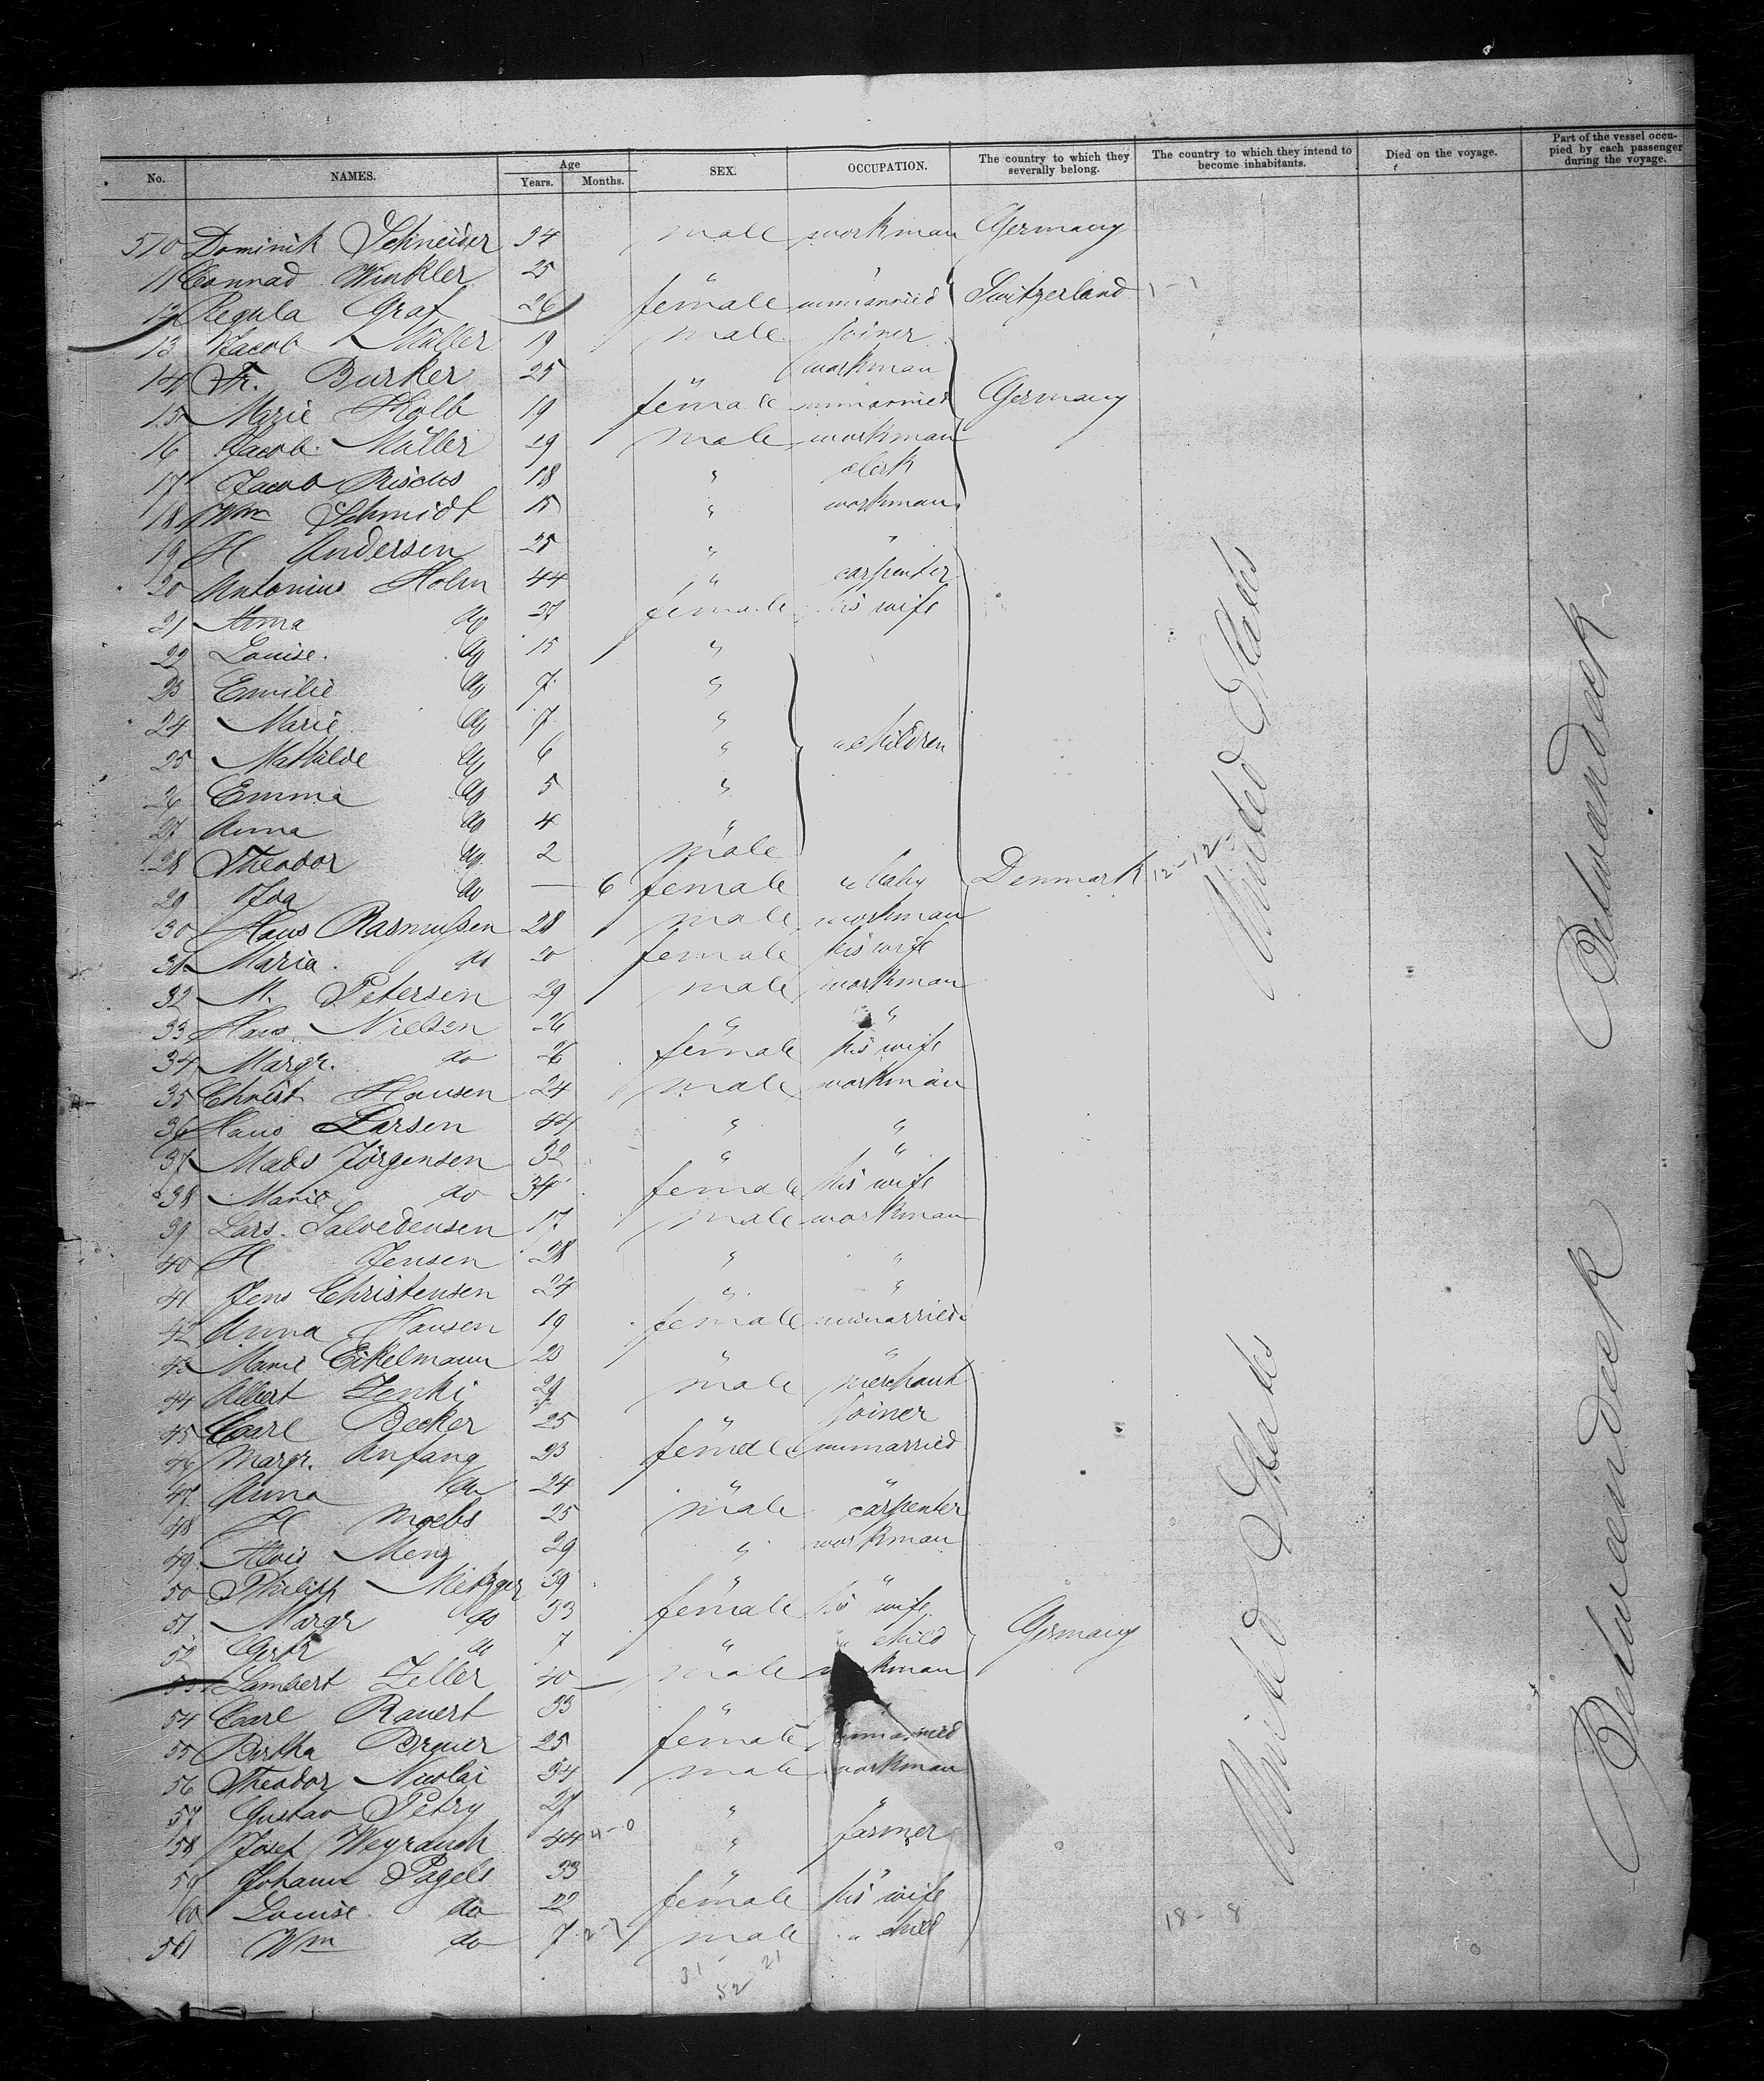 No. NAMES. Age Years. Months. SEX. OCCUPATION. The country to which they severally belong. The country to which they intend to become inhabitants. Died on the voyage. Part of the vessel occupied by each passenger during the voyage.
510 Dominik Schneider 34 male workman Germany
11 Conrad Winkler 25 " "
12 Regula Graf 26 female unmarried Switzerland 1-1
13 Jacob Müller 19 male joiner
14 Fr. Burker 25 " workman
15 Marie Kolb 19 female unmarried Germany
16 Jacob Müller 29 male workman
17 Jacob 18 " clerk
18 Wm Schmidt 15 " workman
19 H Andersen 25 " "
20 Antonius Holm 44 " carpenter
21 Anna do 37 female his wife
22 Louise do 15 "
23 Emilie do 7 "
24 Marie do 7 "
25 Mathilde do 6 " " children
26 Emma do 5 "
27 Anna do 4 "
28 Theodor do 2 male
29 Ida do — 6 female " baby Denmark 12-12
30 Hans Rasmußen 28 male workman
31 Maria do 20 female his wife
32 M. Petersen 29 male workman
33 Hans Nielsen 26 " "
34 Margr. do 26 female his wife
35 Christ Hansen 24 male workman
36 Hans Larsen 44 " "
37 Mads Jörgensen 32 " "
38 Marie do 34 female his wife
39 Lars 17 male workman
40 H Jensen 28 " "
41 Jens Christensen 24 " "
42 Anna Hansen 19 female unmarried
43 Marie Eikelmann 23 " "
44 Albert Zenki 29 male merchant
45 Carl Becker 25 " joiner
46 Margr. Anfang 23 female unmarried
47 Anna do 24 " "
48 H Moebs 25 male carpenter
49 Alois Menz 29 " workman
50 Philipp Metzger 39 " "
51 Margr do 33 female his wife
52 Gertr do 7 " " child Germany
53 Lambert Zeller 40 male workman
54 Carl Rauert 33 " "
55 Bertha Breuer 25 female unmarried
56 Theodor Nicolai 34 male workman
57 Gustav Petry 27 " "
58 Josef Weyrauch 44 4-0 " farmer
59 Johann Pagels 33 " "
60 Louise do 22 female his wife
561 Wm do 7 2-7 male " child 18-8
31 21
52
United States
United States
Betweendeck
Betweendeck